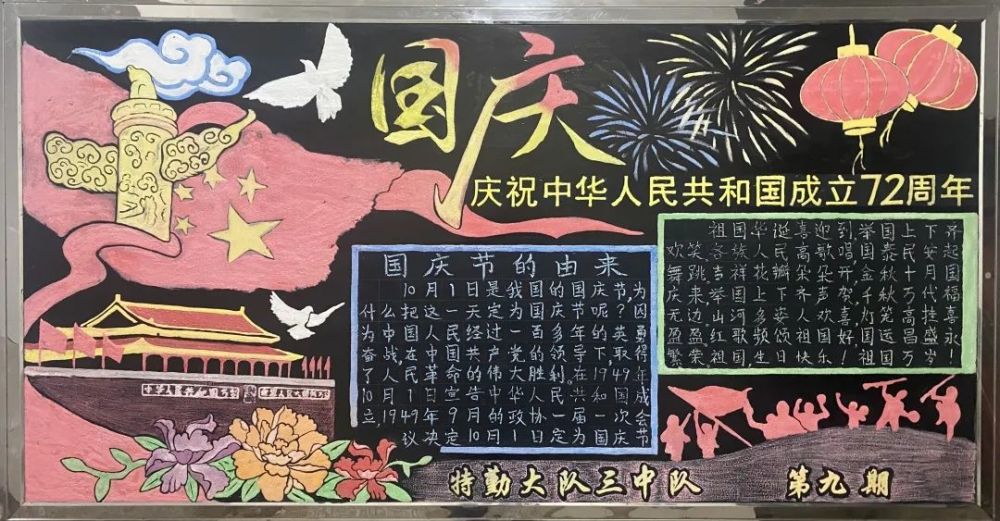 国庆
庆祝中华人民共和国成立72周年
国庆节的由来
10月1日是我国的国庆节,为
什么把这一天定为国庆节呢?因
为中国人民经过一百多年的英勇
奋战,在中国共产党的领导下,取得
了人民革命的伟大胜利.在1949年
10月1日宣告中华人民共和国成
立,1949年9月的政协一届一次会
议决定10月1日定为国庆节
祖国华诞喜迎到,举国上下齐
欢笑.各族人民高歌唱,国泰民安起
舞跳.吉祥花瓣朵朵开,金秋十月国
庆来.举国上下齐声贺,千秋万代福
无边.山河多姿人欢喜,灯笼高挂喜
盈盈.红歌频颂祖国好!国运昌盛永
繁荣.祖国生日快乐!祖国万岁!
中华人民共和国万岁
特勤大队三中队
第九期